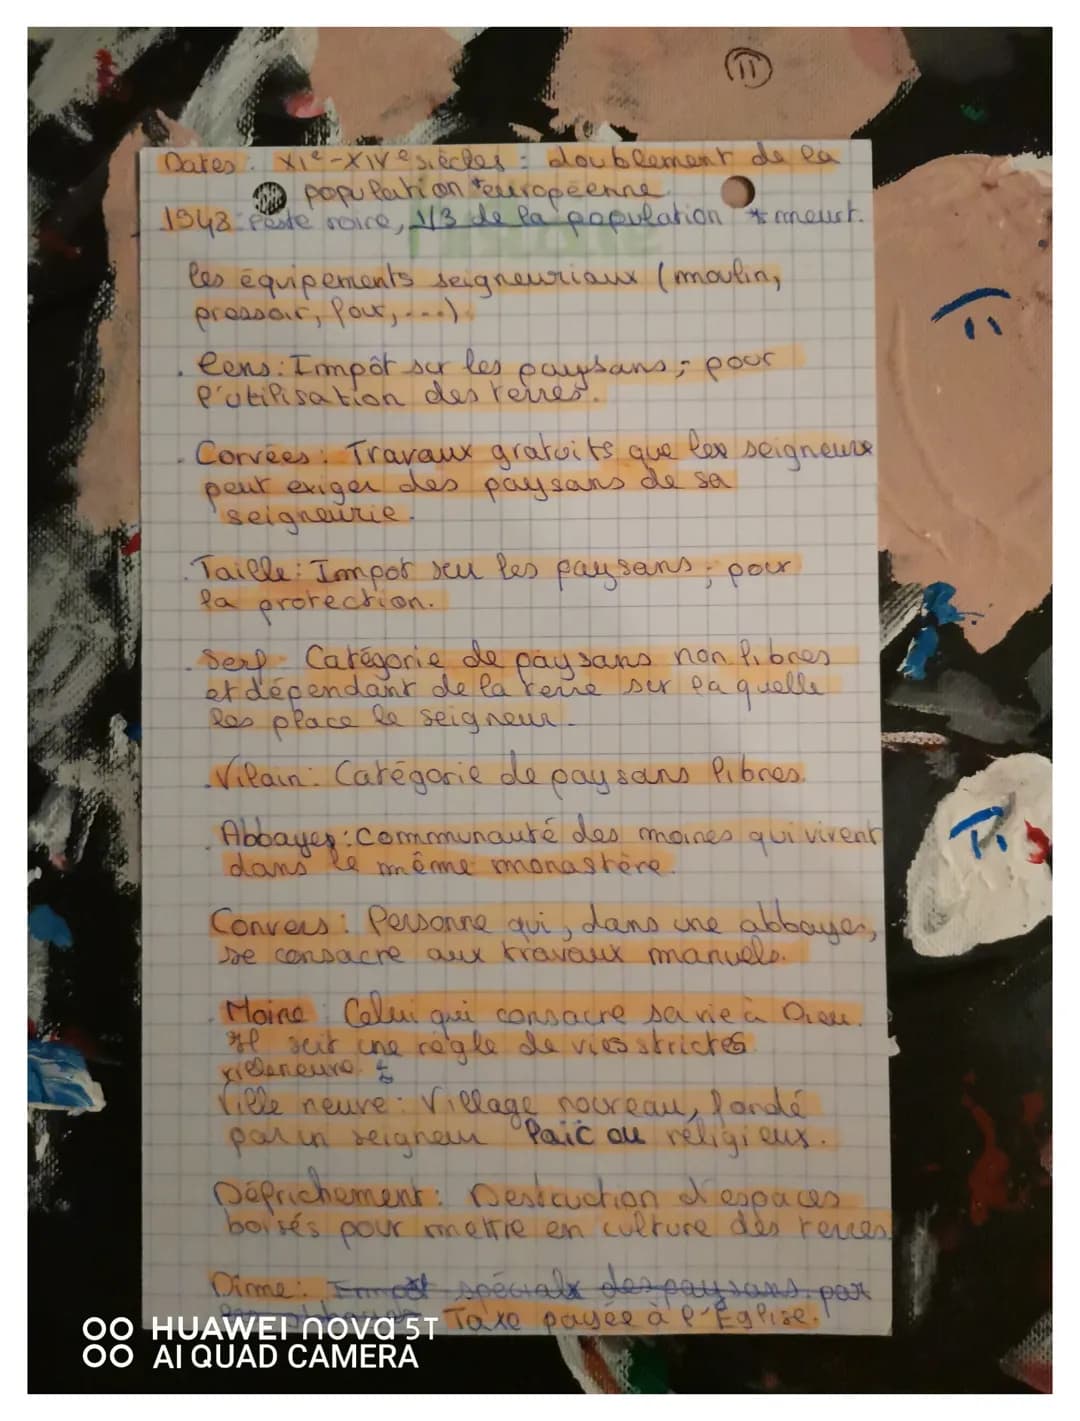 Dates : XIe-XIVe siècles : doublement de la
population européenne
1948 : Peste noire, 1/3 de la population * meurt.
les équipements seigneuriaux (moulin,
pressoir, four, ...)
. Cens : Impôt sur les paysans ; pour
l'utilisation des terres.
. Corvées : Travaux gratuits que les seigneurs
peut exiger des paysans de sa
seigneurie.
. Taille : Impot sur les paysans ; pour
la protection.
. Serf - Catégorie de paysans non libres
et dépendant de la terre sur la quelle
les place le seigneur.
. Vilain : Catégorie de paysans libres.
. Abbayes : Communauté des moines qui vivent
dans le même monastère.
Convers : Personne qui, dans une abbayes,
se consacre aux travaux manuels.
. Moine : Celui qui consacre sa vie à Dieu.
Il suit une règle de vies strictes
Ville neuve : Village nouveau, fondé
par un seigneur laïc ou réligieux.
Défrichement : Destruction d'espaces
boisés pour mettre en culture des terres
Dirme : Impot spécial des paysans par
Taxe payée à l'Église.
HUAWEI nova 5T
AI QUAD CAMERA